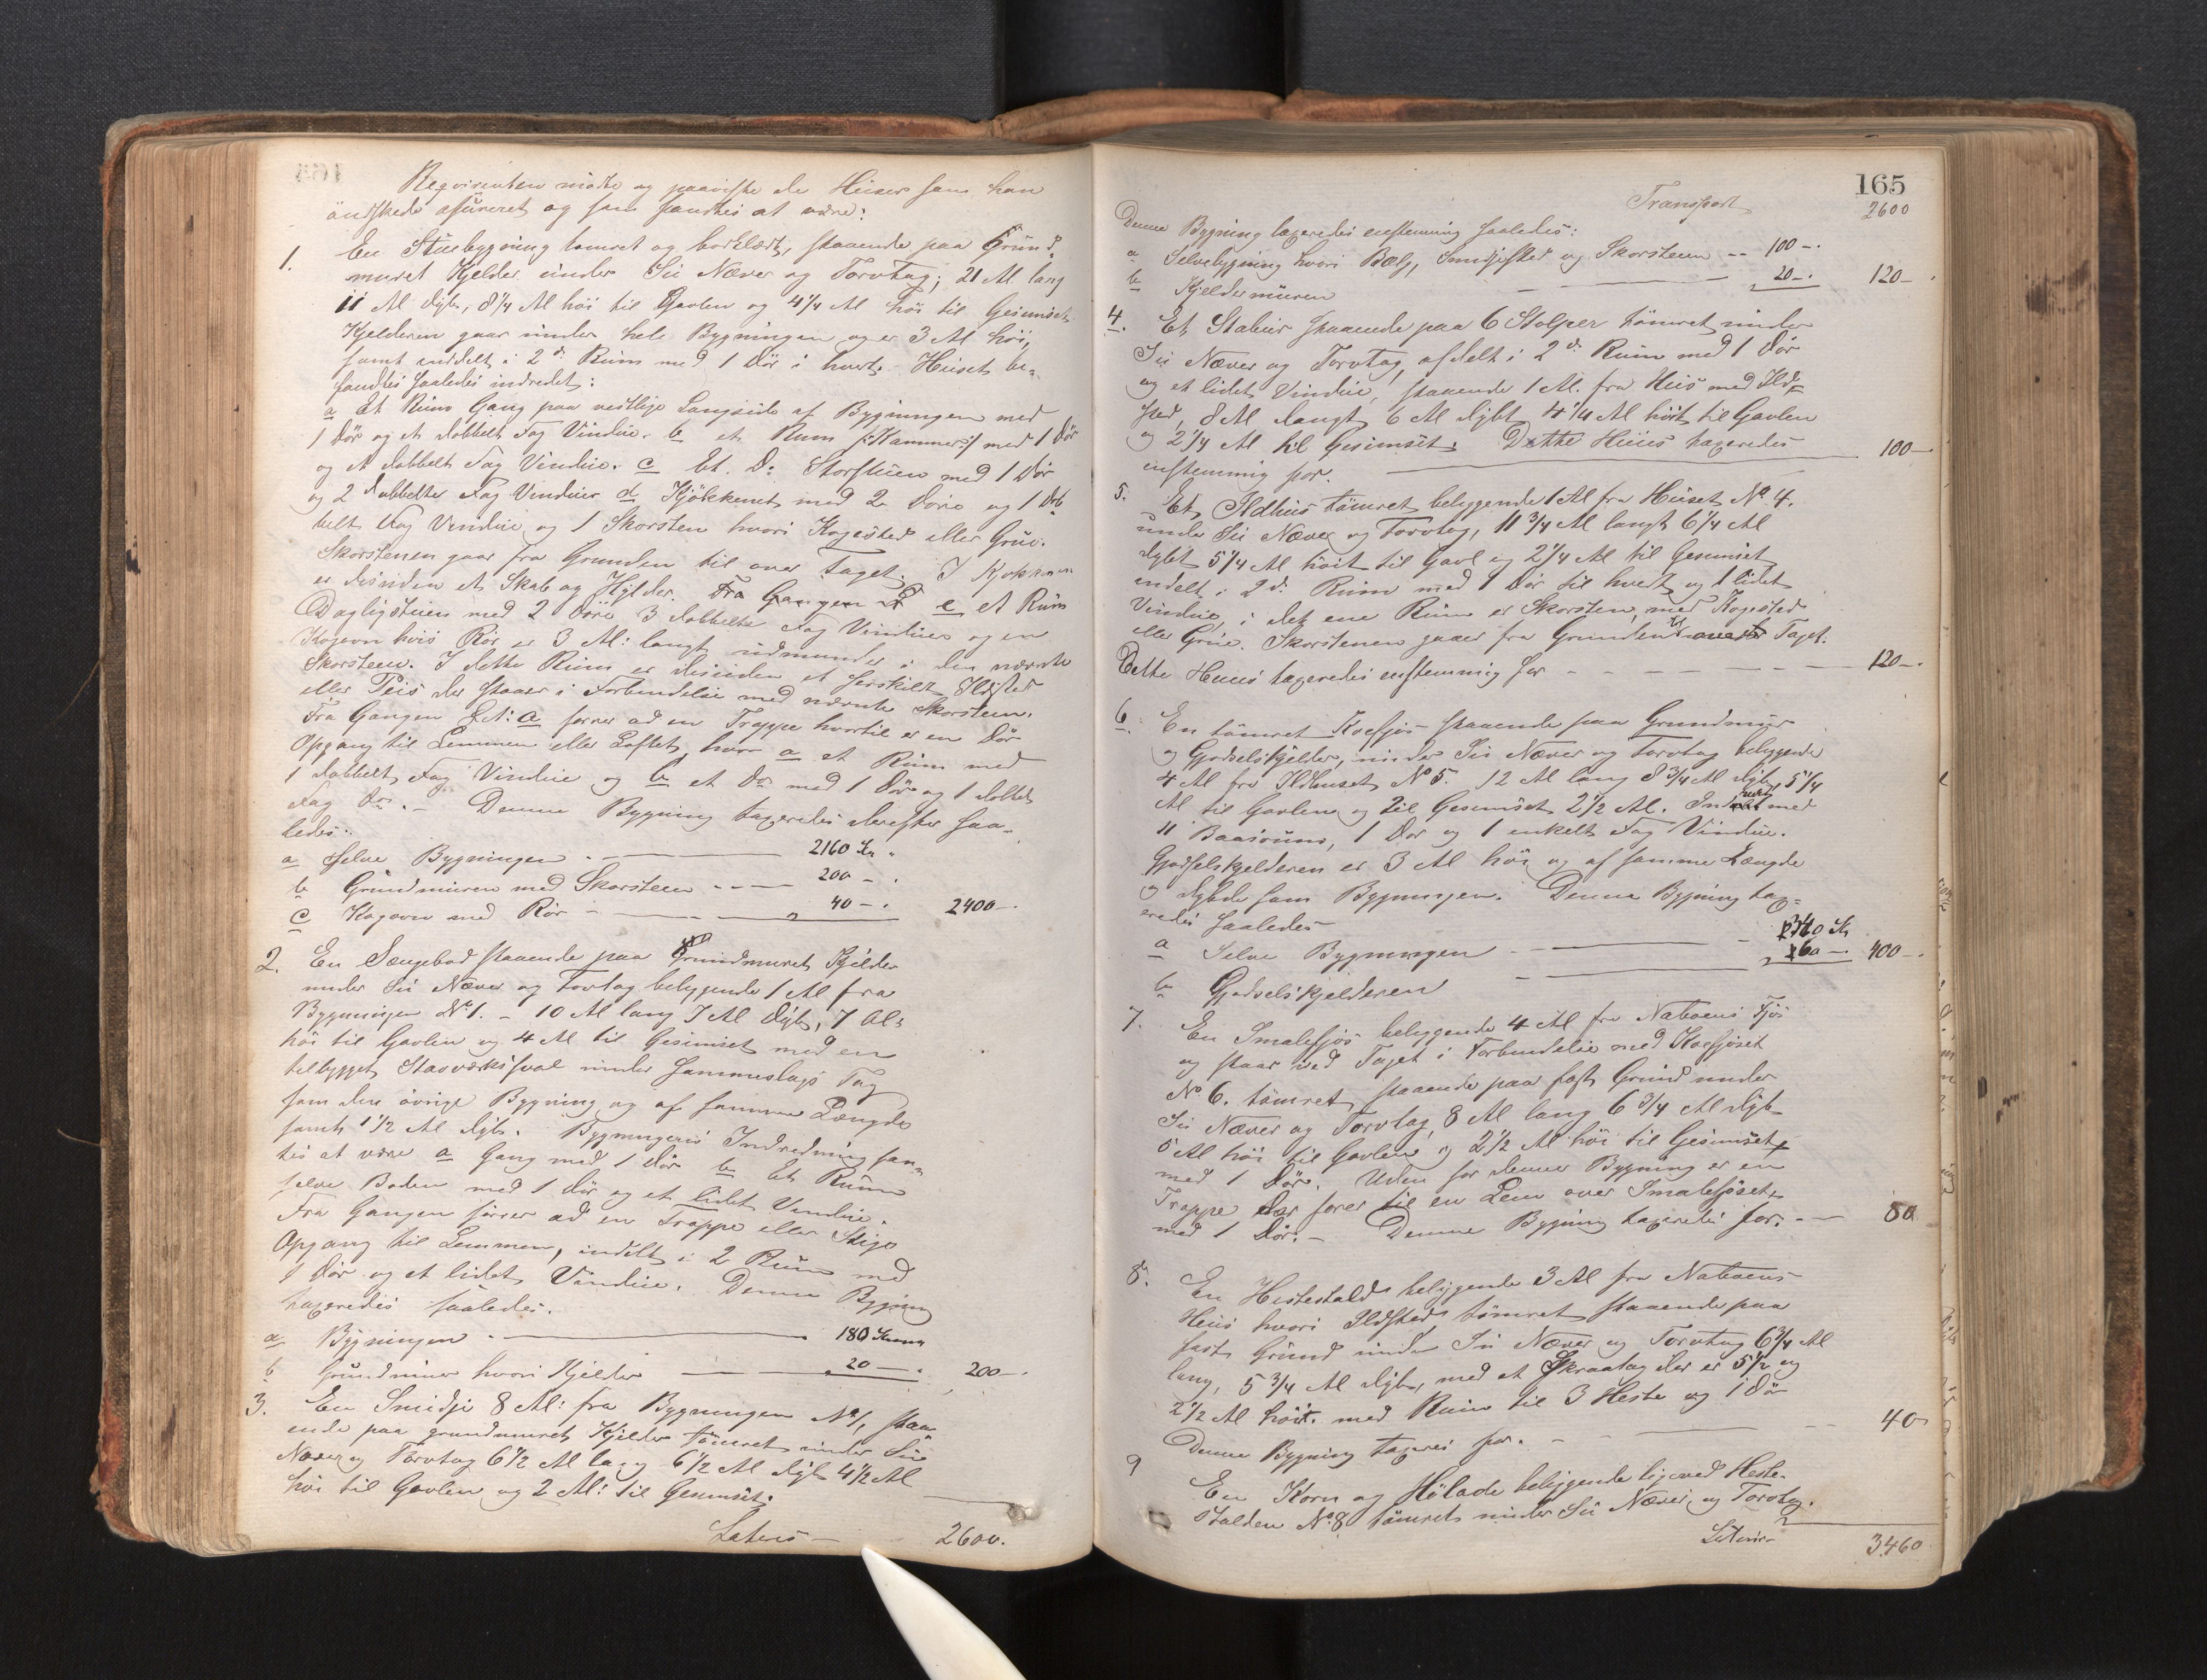 Reqvirenten mødte og paaviste de Huse som han
öndskede assureret og som fandtes at være:
1. En Stuebygning tømret og bordklædt, staaende paa Grund-
muret Kjelder under Su Næver og Torvtag; 21 Al lang
11 Al dyb, 8 1/4 Al høi til Gavlen og 4 1/4 Al høi til Gesimset
Kjelderen gaar under hele Bygningen og er 3 Al høi,
samt inddelt i 2de Rum med 1 Dør i hvert. Huset be-
fandtes saaledes indredet:
a Et Rum Gang paa vestlige Langside af Bygningen med
1 Dør og et dobbelt Fag Vindue. b et Rum /:Kammers:/ med 1 Dør
og et dobbelt Fag Vindue. c Et D: Storstuen med 1 Dør
og 2 dobbelte Fag Vinduer d Kjøkkenet med 2 Døre og 1 dob
belt Fag Vindue og 1 Skorsten hvori Kogested eller Grue.
Skorstenen gaar fra Grunden til over Taget. I Kjøkkenet
er desuden et Skab og Hylder. Fra Gangen e et Rum
Dagligstuen med 2 Døre 3 dobbelte Fag Vinduer og en
Kogeovn hvis Rør er 3 Al: langt udmunder i den nævnte
Skorsteen. I dette Rum er desuden et særskilt Ildsted
eller Peis der staaer i Forbindelse med nævnte Skorsteen.
Fra Gangen Lit: a fører ad en Trappe hvortil er en Dør
Opgang til Lemmen eller Loftet, hvor a et Rum med
1 dobbelt Fag Vindue og b et do med 1 Dør og 1 dobbelt
Fag do. - Denne Bygning taxeredes derefter saa-
ledes:
a Selve Bygningen - 2160 Kr "
b Grundmuren med Skorsteen - - - 200 - .
c Kogeovn med Rør - 40 - . 2400 -.
2. En Sengebod staaende paa Grundmuret Kjelder
under Su Næver og Torvtag beliggende 1 Al fra
Bygningen No 1. - 10 Al lang 7 Al dyb, 7 Al:
høi til Gavlen og 4 Al til Gesimset med en
tilbygget Stavværkssval under sammeslags Tag
som den øvrige Bygning og af samme Længde
samt 1 1/2 Al dyb. Bygningens Indredning fan-
tes at være a Gang med 1 Dør b Et Rum
selve Boden med 1 Dør og et lidet Vindue.
Fra Gangen fører ad en Trappe eller Stige
Opgang til Lemmen, inddelt i 2 Rum med
1 Dør og et lidet Vindue. Denne Bygning
taxeredes saaledes.
a Bygningen - 180 Kroner
b Grundmur hvori Kjelder 20 - . 200 -.
3. En Smidje 8 Al: fra Bygningen No 1, staa-
ende paa grundmuret Kjelder tømret under Su
Næver og Torvtag 6 1/2 Al lang 6 1/2 Al dyb 4 1/2 Al
høi til Gavlen og 2 Al: til Gesimset.
Lateris - 2600.
165
Transport 2600
Denne Bygning taxeredes enstemmig saaledes:
a Selvebygning hvori Bælg, Smidjested og Skorsteen - - 100 -.
b Kjeldermuren 20 -. 120 -
4. Et Stabur staaende paa 6 Stolper tømret under
Su Næver og Torvtag, afdelt i 2de Rum med 1 Dør
og et lidet Vindue, staaende 1 Al. fra Huus med Ild-
sted, 8 Al langt 6 Al dybt 4 1/4 Al høit til Gavlen
og 2 1/4 Al til Gesimset. Dette Huus taxeredes
enstemmig for. 100 -
5. Et Ildhus tømret beliggende 1 Al fra Huset No 4.
under Su Næver og Torvtag, 11 3/4 Al langt 6 1/4 Al
dybt 5 1/4 Al høit til Gavl og 2 1/4 Al til Gesimset
inddelt i 2de Rum med 1 Dør til hvert og 1 lidet
Vindue, i det ene Rum er Skorsten med Kogested
eller Grue. Skorstenen gaaer fra Grunden til over Taget.
Dette Huus taxeredes enstemmig for - - - 120 -.
6. En tømret Koefjøs staaende paa Grundmur
og Gjødselskjelder, under Su Næver og Torvtag beliggende
4 Al fra Ildhuset No 5. 12 Al lang 8 3/4 Al dyb, 5 1/4
Al til Gavlen og til Gesimset 2 1/2 Al. Indredt med
11 Baasrum, 1 Dør og 1 enkelt Fag Vindue.
Gjødselskjelderen er 3 Al høi og af samme Længde
og Dybde som Bygningen. Denne Bygning tax-
eredes saaledes
a Selve Bygningen - 340 Kr
b Gjødselskjelderen 60 -. 400 -.
7. En Smalefjøs beliggende 4 Al fra Naboens Fjøs
og staar med Taget i Forbindelse med Koefjøset
No 6. tømret, staaende paa fast Grund under
Su Næver og Torvtag, 8 Al lang 6 3/4 Al dyb
5 Al høi til Gavlen og 2 1/2 Al høi til Gesimset
med 1 Dør. Uden for denne Bygning er en
Trappe der fører til en Lem over Smalefjøset
med 1 Dør. - Denne Bygning taxeredes for. - 80
8. En Hestestald beliggende 3 Al fra Naboens
Huus hvori Ildsted, tømret staaende paa
fast Grund under Su Næver og Torvtag 6 3/4 Al
lang, 5 3/4 Al dyb, med et Skraatag der er 5 1/2 og
2 1/2 Al høit. med Rum til 3 Heste og 1 Dør
Denne Bygning taxeres for. - 40
9 En Korn og Hølade beliggende ligeved Heste-
stalden No 8 tømret under Su Næver og Torvtag.
Lateris 3460